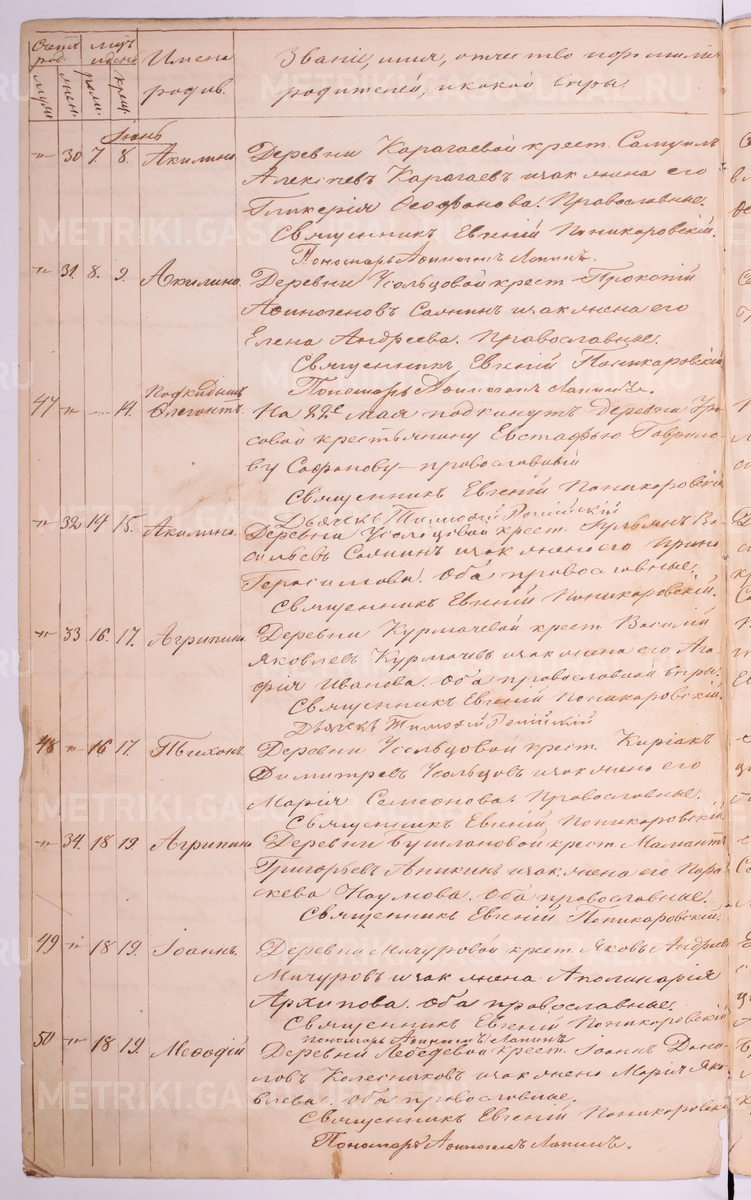 Счетъ род.
муж.
жен.
м-цъ и день
рожд.
крещ.
Имена родив.
Званіе, имя, отчество и фамилія
родителей, и какой вѣры
Іюнь
" 30 7. 8. Акилина. Деревни Карагаевой крест. Самуилъ
Алексѣевъ Карагаевъ и зак. жена его
Гликерія Ѳеофанова. Православные.
Священникъ Евгеній Поникаровскій.
Пономарь Аѳиногенъ Лапинъ.
" 31. 8. 9. Акилина. Деревни Усольцовой крест. Прокопій
Аѳиногеновъ Саянинъ и зак. жена его
Елена Андреева. Православные.
Священникъ Евгеній Поникаровскій
Пономарь Аѳиногенъ Лапинъ.
Подкидышъ
47 " — 14. На 22е мая подкинутъ Деревни
крестьянину Евстафью Гаврило-
ву Сафонову — православный
Священникъ Евгеній Поникаровскій
Дьячекъ Тимоѳей
" 32 14 15. Акилина. Деревни Усольцовой крест. Ва-
сильевъ Саянинъ и зак. жена его Ирина
Герасимова. Оба православные.
Священникъ Евгеній Поникаровскій.
" 33 16. 17. Агрипина. Деревни Курмачевой крест. Василій
Яковлевъ Курмачевъ и зак. жена его Ага-
фія Иванова. Оба православной вѣры.
Священникъ Евгеній Поникаровскій.
Дьячекъ Тимоѳей
48 " 16 17. Тихонъ. Деревни Усольцовой крест. Киріакъ
Димитревъ Усольцовъ и зак. жена его
Марія Семеонова. Православные.
Священникъ Евгеній Поникаровскій
" 34. 18 19. Агрипина Деревни Бушлановой крест. Мамантъ
Григорьевъ Аникинъ и зак. жена его Пара-
скева Наумова. Оба православные.
Священникъ Евгеній Поникаровскій.
49 " 18 19. Іоаннъ. Деревни Мичуровой крест. Яковъ Андреевъ
Мичуровъ и зак. жена Аполинарія
Архипова. Оба православные.
Священникъ Евгеній Поникаровскій
пономарь Аѳиногенъ Лапинъ
50 " 18 19. Меѳодій Деревни Лебедевой крест. Іоаннъ Дани-
ловъ Колесниковъ и зак. жена Марія Яко-
влева. Оба православные.
Священникъ Евгеній Поникаровскій
Пономарь Аѳиногенъ Лапинъ.